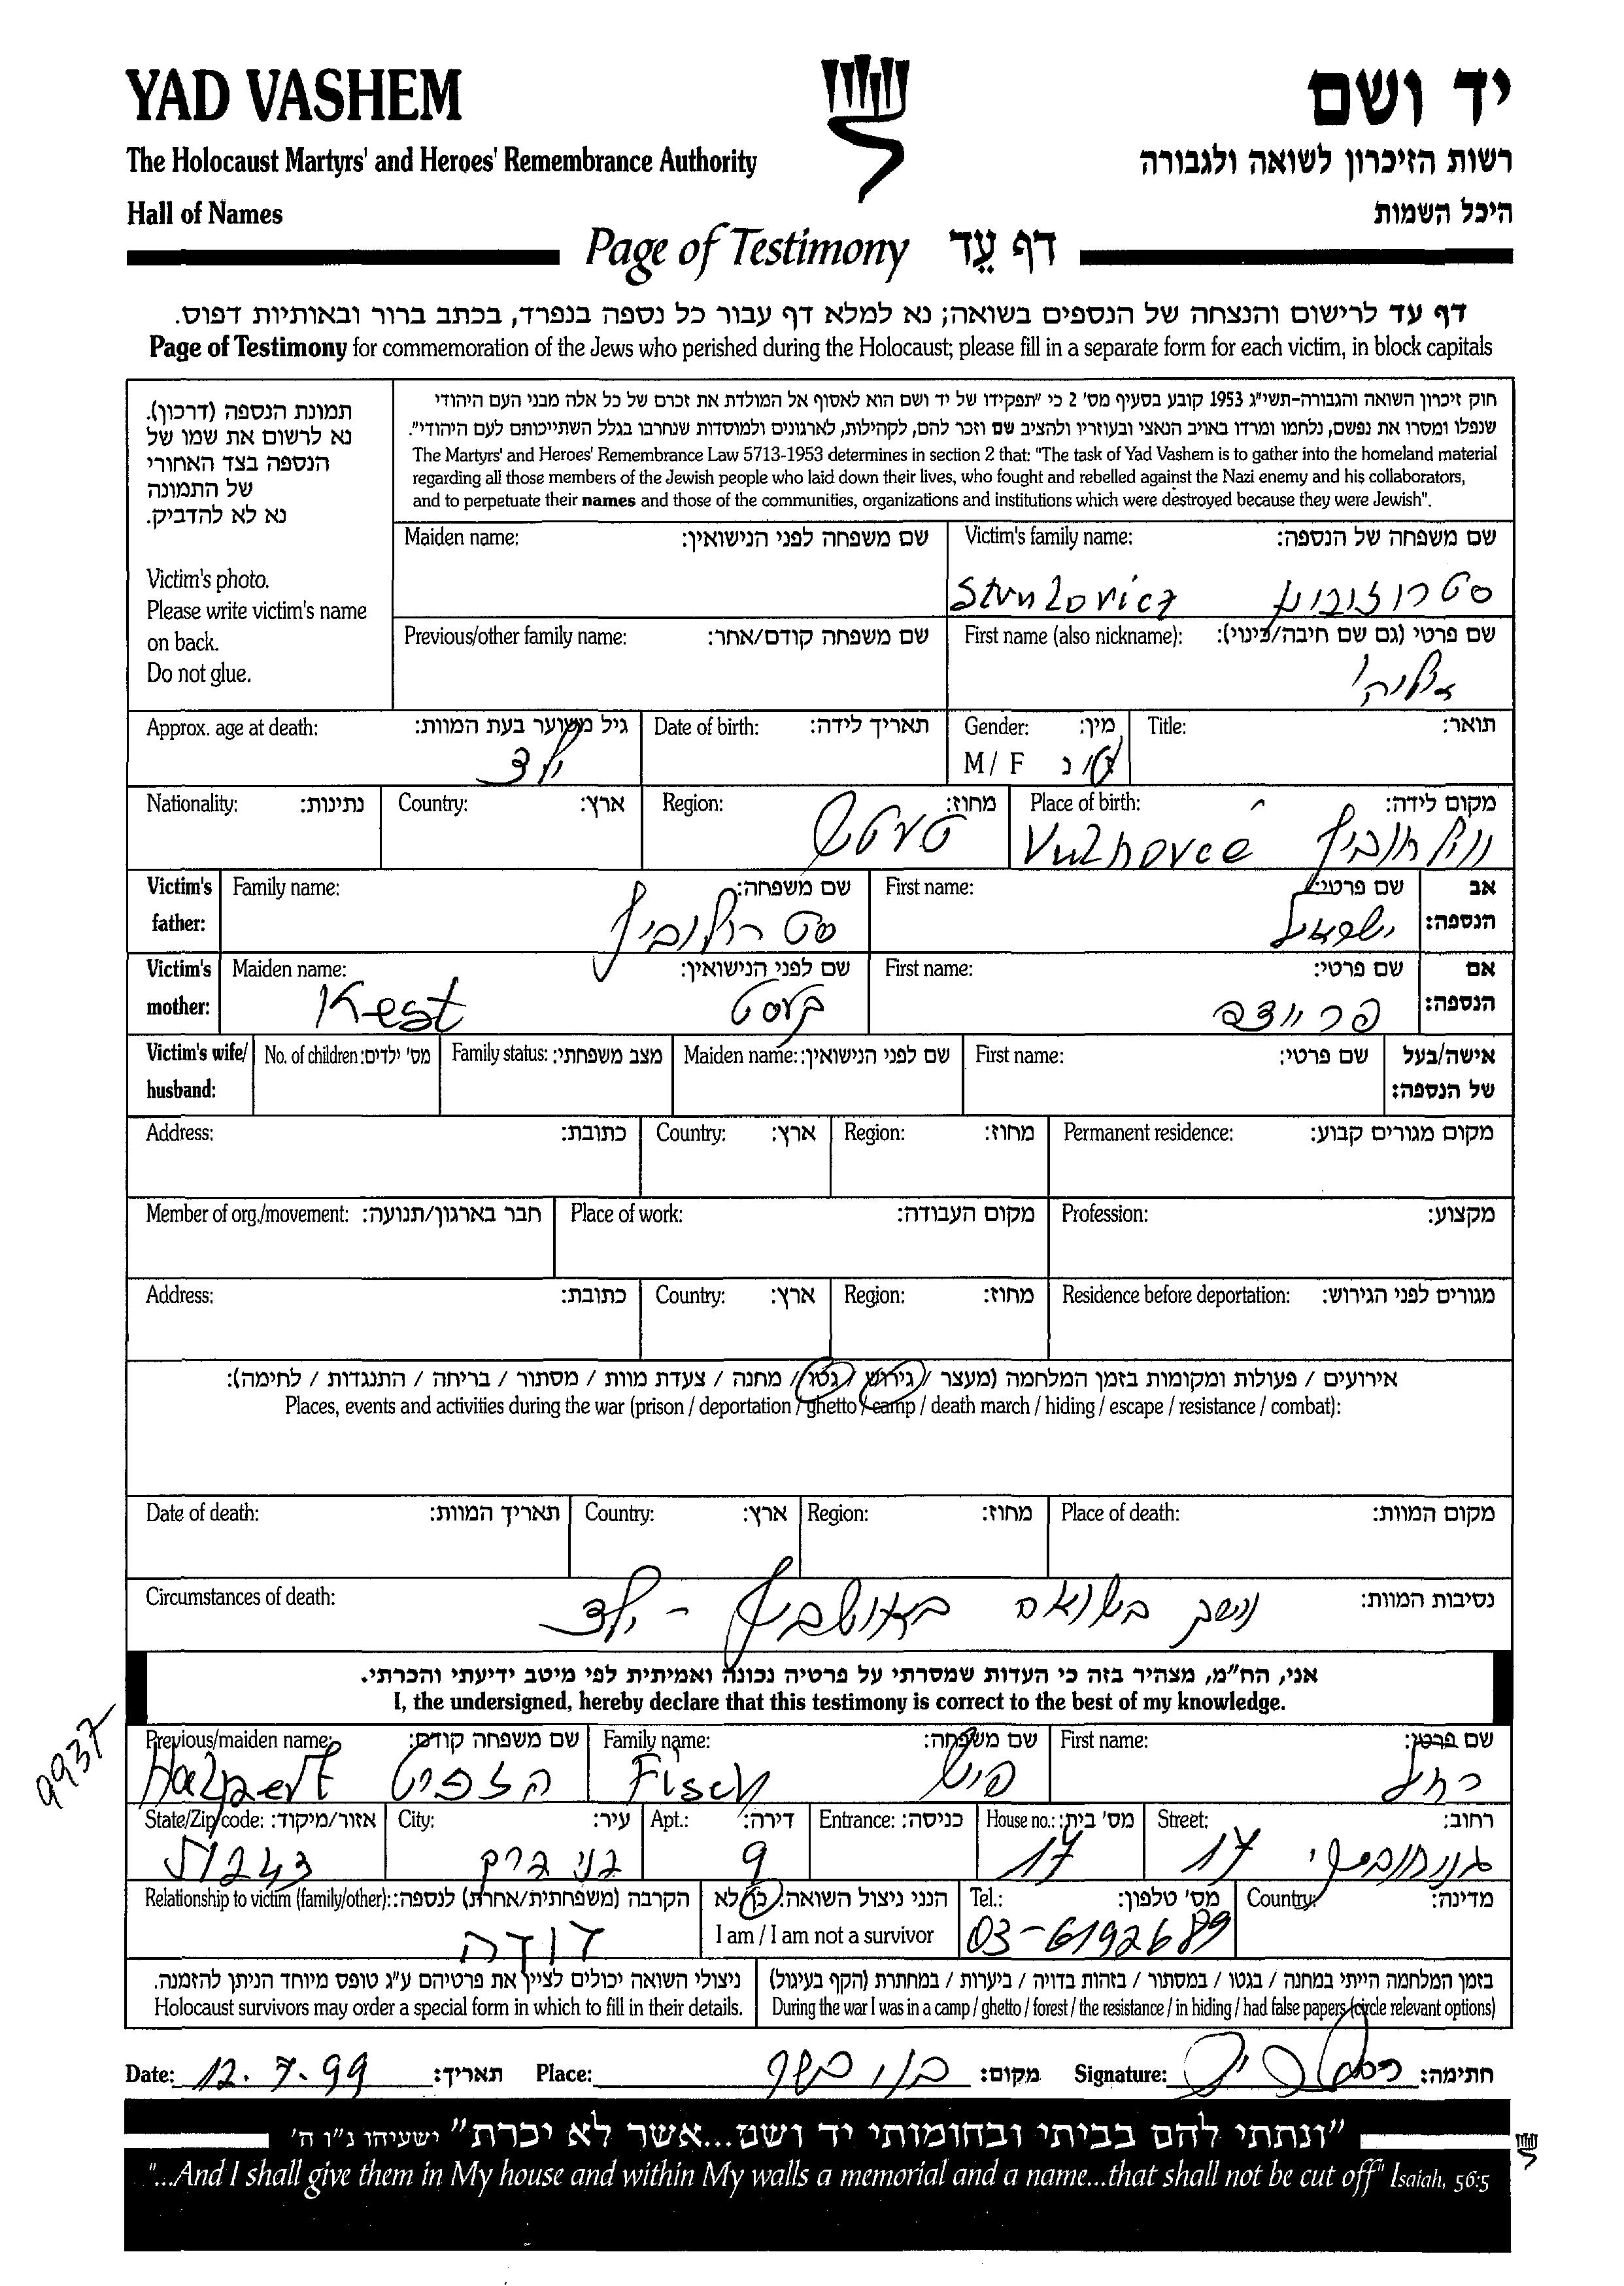 YAD VASHEM
יד ושם
The Holocaust Martyrs' and Heroes' Remembrance Authority
רשות הזיכרון לשואה ולגבורה
Hall of Names
היכל השמות
Page of Testimony דף עֵד
דף עד לרישום והנצחה של הנספים בשואה; נא למלא דף עבור כל נספה בנפרד, בכתב ברור ובאותיות דפוס.
Page of Testimony for commemoration of the Jews who perished during the Holocaust; please fill in a separate form for each victim, in block capitals
תמונת הנספה (דרכון).
נא לרשום את שמו של
הנספה בצד האחורי
של התמונה
נא לא להדביק.
Victim's photo.
Please write victim's name
on back.
Do not glue.
חוק זיכרון השואה והגבורה-תשי"ג 1953 קובע בסעיף מס' 2 כי "תפקידו של יד ושם הוא לאסוף אל המולדת את זכרם של כל אלה מבני העם היהודי
שנפלו ומסרו את נפשם, נלחמו ומרדו באויב הנאצי ובעוזריו ולהציב שם וזכר להם, לקהילות, לארגונים ולמוסדות שנחרבו בגלל השתייכותם לעם היהודי".
The Martyrs' and Heroes' Remembrance Law 5713-1953 determines in section 2 that: "The task of Yad Vashem is to gather into the homeland material
regarding all those members of the Jewish people who laid down their lives, who fought and rebelled against the Nazi enemy and his collaborators,
and to perpetuate their names and those of the communities, organizations and institutions which were destroyed because they were Jewish".
Maiden name: שם משפחה לפני הנישואין: Victim's family name: שם משפחה של הנספה:
Previous/other family name: שם משפחה קודם/אחר: First name (also nickname): שם פרטי (גם שם חיבה/כינוי):
Approx. age at death: גיל משוער בעת המוות: Date of birth: תאריך לידה: Gender: מין: Title: תואר:
ילד M / F ז / נ
Nationality: נתינות: Country: ארץ: Region: מחוז: Place of birth: מקום לידה:
Victim's father: Family name: שם משפחה: First name: שם פרטי: אב הנספה:
ישראל
Victim's mother: Maiden name: שם לפני הנישואין: First name: שם פרטי: אם הנספה:
Kest קסט
Victim's wife/ husband: No. of children: מס' ילדים: Family status: מצב משפחתי: Maiden name: שם לפני הנישואין: First name: שם פרטי: אישה/בעל של הנספה:
Address: כתובת: Country: ארץ: Region: מחוז: Permanent residence: מקום מגורים קבוע:
Member of org./movement: חבר בארגון/תנועה: Place of work: מקום העבודה: Profession: מקצוע:
Address: כתובת: Country: ארץ: Region: מחוז: Residence before deportation: מגורים לפני הגירוש:
אירועים / פעולות ומקומות בזמן המלחמה (מעצר / גירוש / גטו / מחנה / צעדת מוות / מסתור / בריחה / התנגדות / לחימה):
Places, events and activities during the war (prison / deportation / ghetto / camp / death march / hiding / escape / resistance / combat):
Date of death: תאריך המוות: Country: ארץ: Region: מחוז: Place of death: מקום המוות:
Circumstances of death: נסיבות המוות:
בשואה באושביץ - ילד
אני, הח"מ, מצהיר בזה כי העדות שמסרתי על פרטיה נכונה ואמיתית לפי מיטב ידיעתי והכרתי.
I, the undersigned, hereby declare that this testimony is correct to the best of my knowledge.
9937
Previous/maiden name: שם משפחה קודם: Family name: שם משפחה: First name: שם פרטי:
Halpert Fisch פיש רחל
State/Zip code: אזור/מיקוד: City: עיר: Apt.: דירה: Entrance: כניסה: House no.: מס' בית: Street: רחוב:
51243 בני ברק 9 17 17
Relationship to victim (family/other): הקרבה (משפחתית/אחרת) לנספה: הנני ניצול השואה: כן / לא Tel.: מס' טלפון: Country: מדינה:
דודה I am / I am not a survivor 03-6192689
ניצולי השואה יכולים לציין את פרטיהם ע"ג טופס מיוחד הניתן להזמנה.
Holocaust survivors may order a special form in which to fill in their details.
בזמן המלחמה הייתי במחנה / בגטו / במסתור / בזהות בדויה / ביערות / במחתרת (הקף בעיגול)
During the war I was in a camp / ghetto / forest / the resistance / in hiding / had false papers (circle relevant options)
Date: 12.7.99 תאריך: Place: בני ברק מקום: Signature: חתימה:
"ונתתי להם בביתי ובחומותי יד ושם...אשר לא יכרת" ישעיהו נ"ו ה'
"...And I shall give them in My house and within My walls a memorial and a name...that shall not be cut off" Isaiah, 56:5